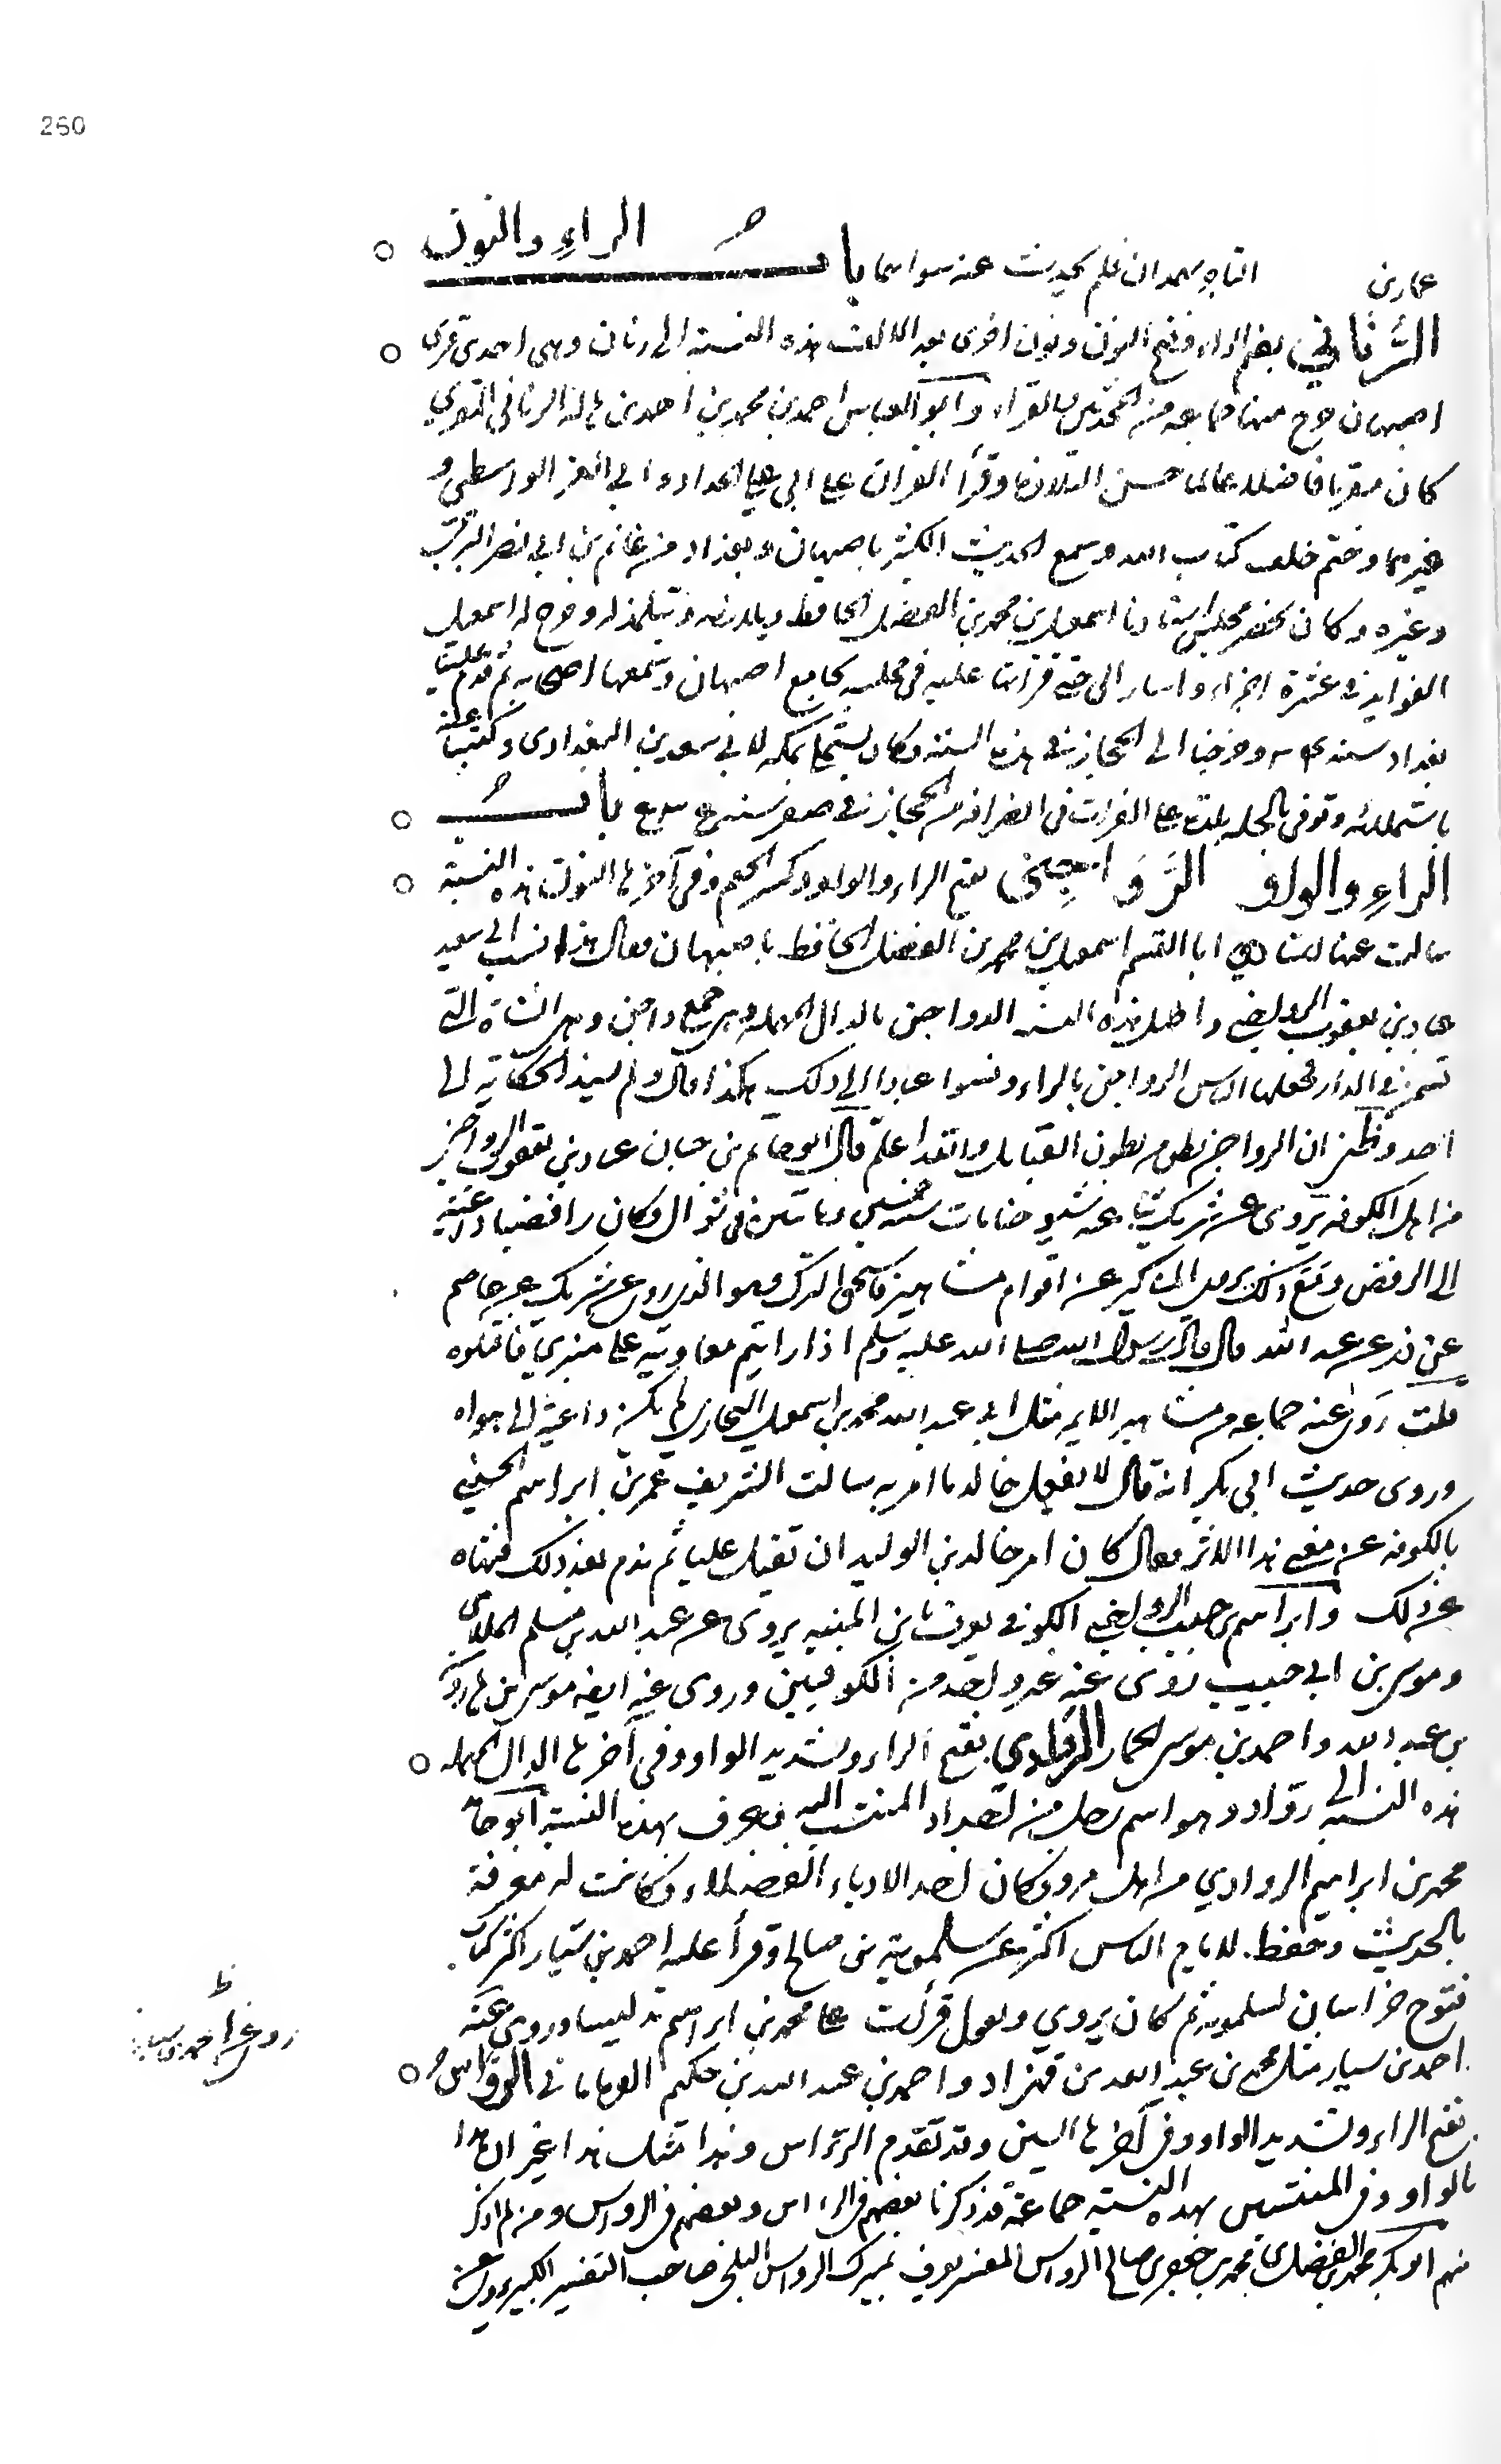 260
عمار بن التاجر بهمدان فلم يحدث عنه سواهما باب الراء والنون ○
الرُّنَاني بضم الراء وفتح النون ونون اخرى بعد الالف هذه النسبة الى رنان وهى احدى قرى ○
اصبهان خرج منها جماعة من المحدثين والقراء وابو العباس احمد بن محمد بن احمد بن الرناني المقري
كان مقريا فاضلا عالما حسن التلاوة وقرأ القران على ابي علي الحداد وابي العز الواسطي و
غيرهما وختم خلف كتاب الله وسمع الحديث الكثير باصبهان وبغداد من غانم بن ابي نصر البرجي
وغيره وكان يحضر مجلس استاذنا اسمعيل بن محمد بن الفضل الحافظ ويلازمه ويتلمذ له وخرج له اسمعيل
الفوايد في عشرة اجزاء واشار الى حتى قرأت عليه في مجلسه بجامع اصبهان وسمعها اصحابه ثم قدم علينا
بغداد سنة وخرجنا الى الحجاز في هذه السنة وكان يستملي بمكة لابي سعد بن البغدادي وكتبنا عنه
باستملائه وتوفي بالحلة بلدة على الفرات في انصرافه من الحجاز في صفر سنة باب ○
الراء والواو الرَّوَاجِني بفتح الراء والواو وكسر الجيم وفي آخرها النون هذه النسبة ○
سالت عنها استاذي ابا القسم اسمعيل بن محمد بن الفضل الحافظ باصبهان فقال هذا نسب ابي سعيد
عباد بن يعقوب الرواجني واصل هذه النسبة الدواجن بالدال المهملة وهى جمع داجن وهى الشاة التي
تسمن في الدار فجعلها الناس الرواجن بالراء ونسبوا عبادا الى ذلك هكذا قال ولم يسند الحكاية الى
احد وظني ان الرواجن بطن من بطون القبايل والله اعلم قال ابو حاتم بن حبان عباد بن يعقوب الرواجني
من اهل الكوفة يروى عن شريك حدثنا عنه شيوخنا مات سنة خمسين ومائتين في شوال وكان رافضيا داعية
الى الرفض ومع ذلك يروي المناكير عن اقوام مشاهير فاستحق الترك وهو الذي روى عن شريك عن عاصم
عن زر عن عبد الله قال قال رسول الله صلى الله عليه وسلم اذا رايتم معاوية على منبري فاقتلوه
قلت روى عنه جماعة من مشاهير الايمة مثل ابي عبد الله محمد بن اسمعيل البخاري لانه لم يكن داعية الى هواه
وروى حديث ابي بكر انه قال لا يفعل خالد ما امر به سالت الشريف عمر بن ابراهيم الحسيني
بالكوفة عن معنى هذا الاثر فقال كان امر خالد بن الوليد ان يقتل عليا ثم ندم بعد ذلك فنهاه
عن ذلك وابراهيم بن حبيب الرواجني الكوفي يعرف بابن الميتة يروى عن عبد الله بن مسلم الملائي
وموسى بن ابي حبيب روى عنه غير واحد من الكوفيين وروى عنه ايضا موسى بن هارون
بن عبد الله واحمد بن موسى الحمار الروّادي بفتح الراء وتشديد الواو وفي آخرها الدال المهملة ○
هذه النسبة الى روّاد وهو اسم رجل من اجداد المنتسب اليه فعرف بهذه النسبة ابو حاتم
محمد بن ابراهيم الروادي من اهل مرو وكان احد الادباء الفضلاء وكانت له معرفة
بالحديث وحفظ لايام الناس اكثر عن سلمويه بن صالح وقرأ عليه احمد بن سيار اكثر كتاب
فتوح خراسان لسلمويه ثم كان يروي ويقول قرأت على محمد بن ابراهيم تدليسا وروى عنه
روى عنه احمد بن سيار ظ
احمد بن سيار مثل محمد بن عبد الله بن قهزاد واحمد بن عبد الله بن حكيم الفرياناني الروّاس ○
بفتح الراء وتشديد الواو وفي آخرها السين وقد تقدم الرءّاس وهذا مثل هذا غير ان هذا
بالواو وفي المنتسبين بهذه النسبة جماعة قد ذكرنا بعضهم في الرءاس وبعضهم في الرواس ومن لم اذكر
منهم ابو بكر محمد بن الفضل بن محمد بن جعفر بن صالح الرواس المفسر يعرف بميرك الرواس البلخي صاحب التفسير الكبير يروى عن